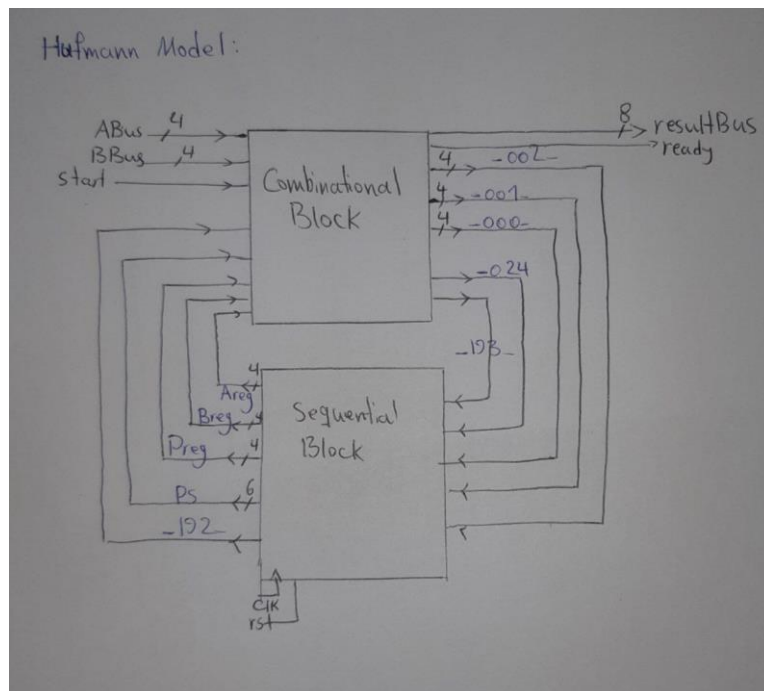 Hufmann Model:
ABus 4
BBus 4
start
Combinational
Block
8 resultBus
ready
4 -002-
4 -001-
4 -000-
-024
-193-
4
Areg
Breg 4
Preg 4
Ps 6
-192-
Sequential
Block
Clk
rst